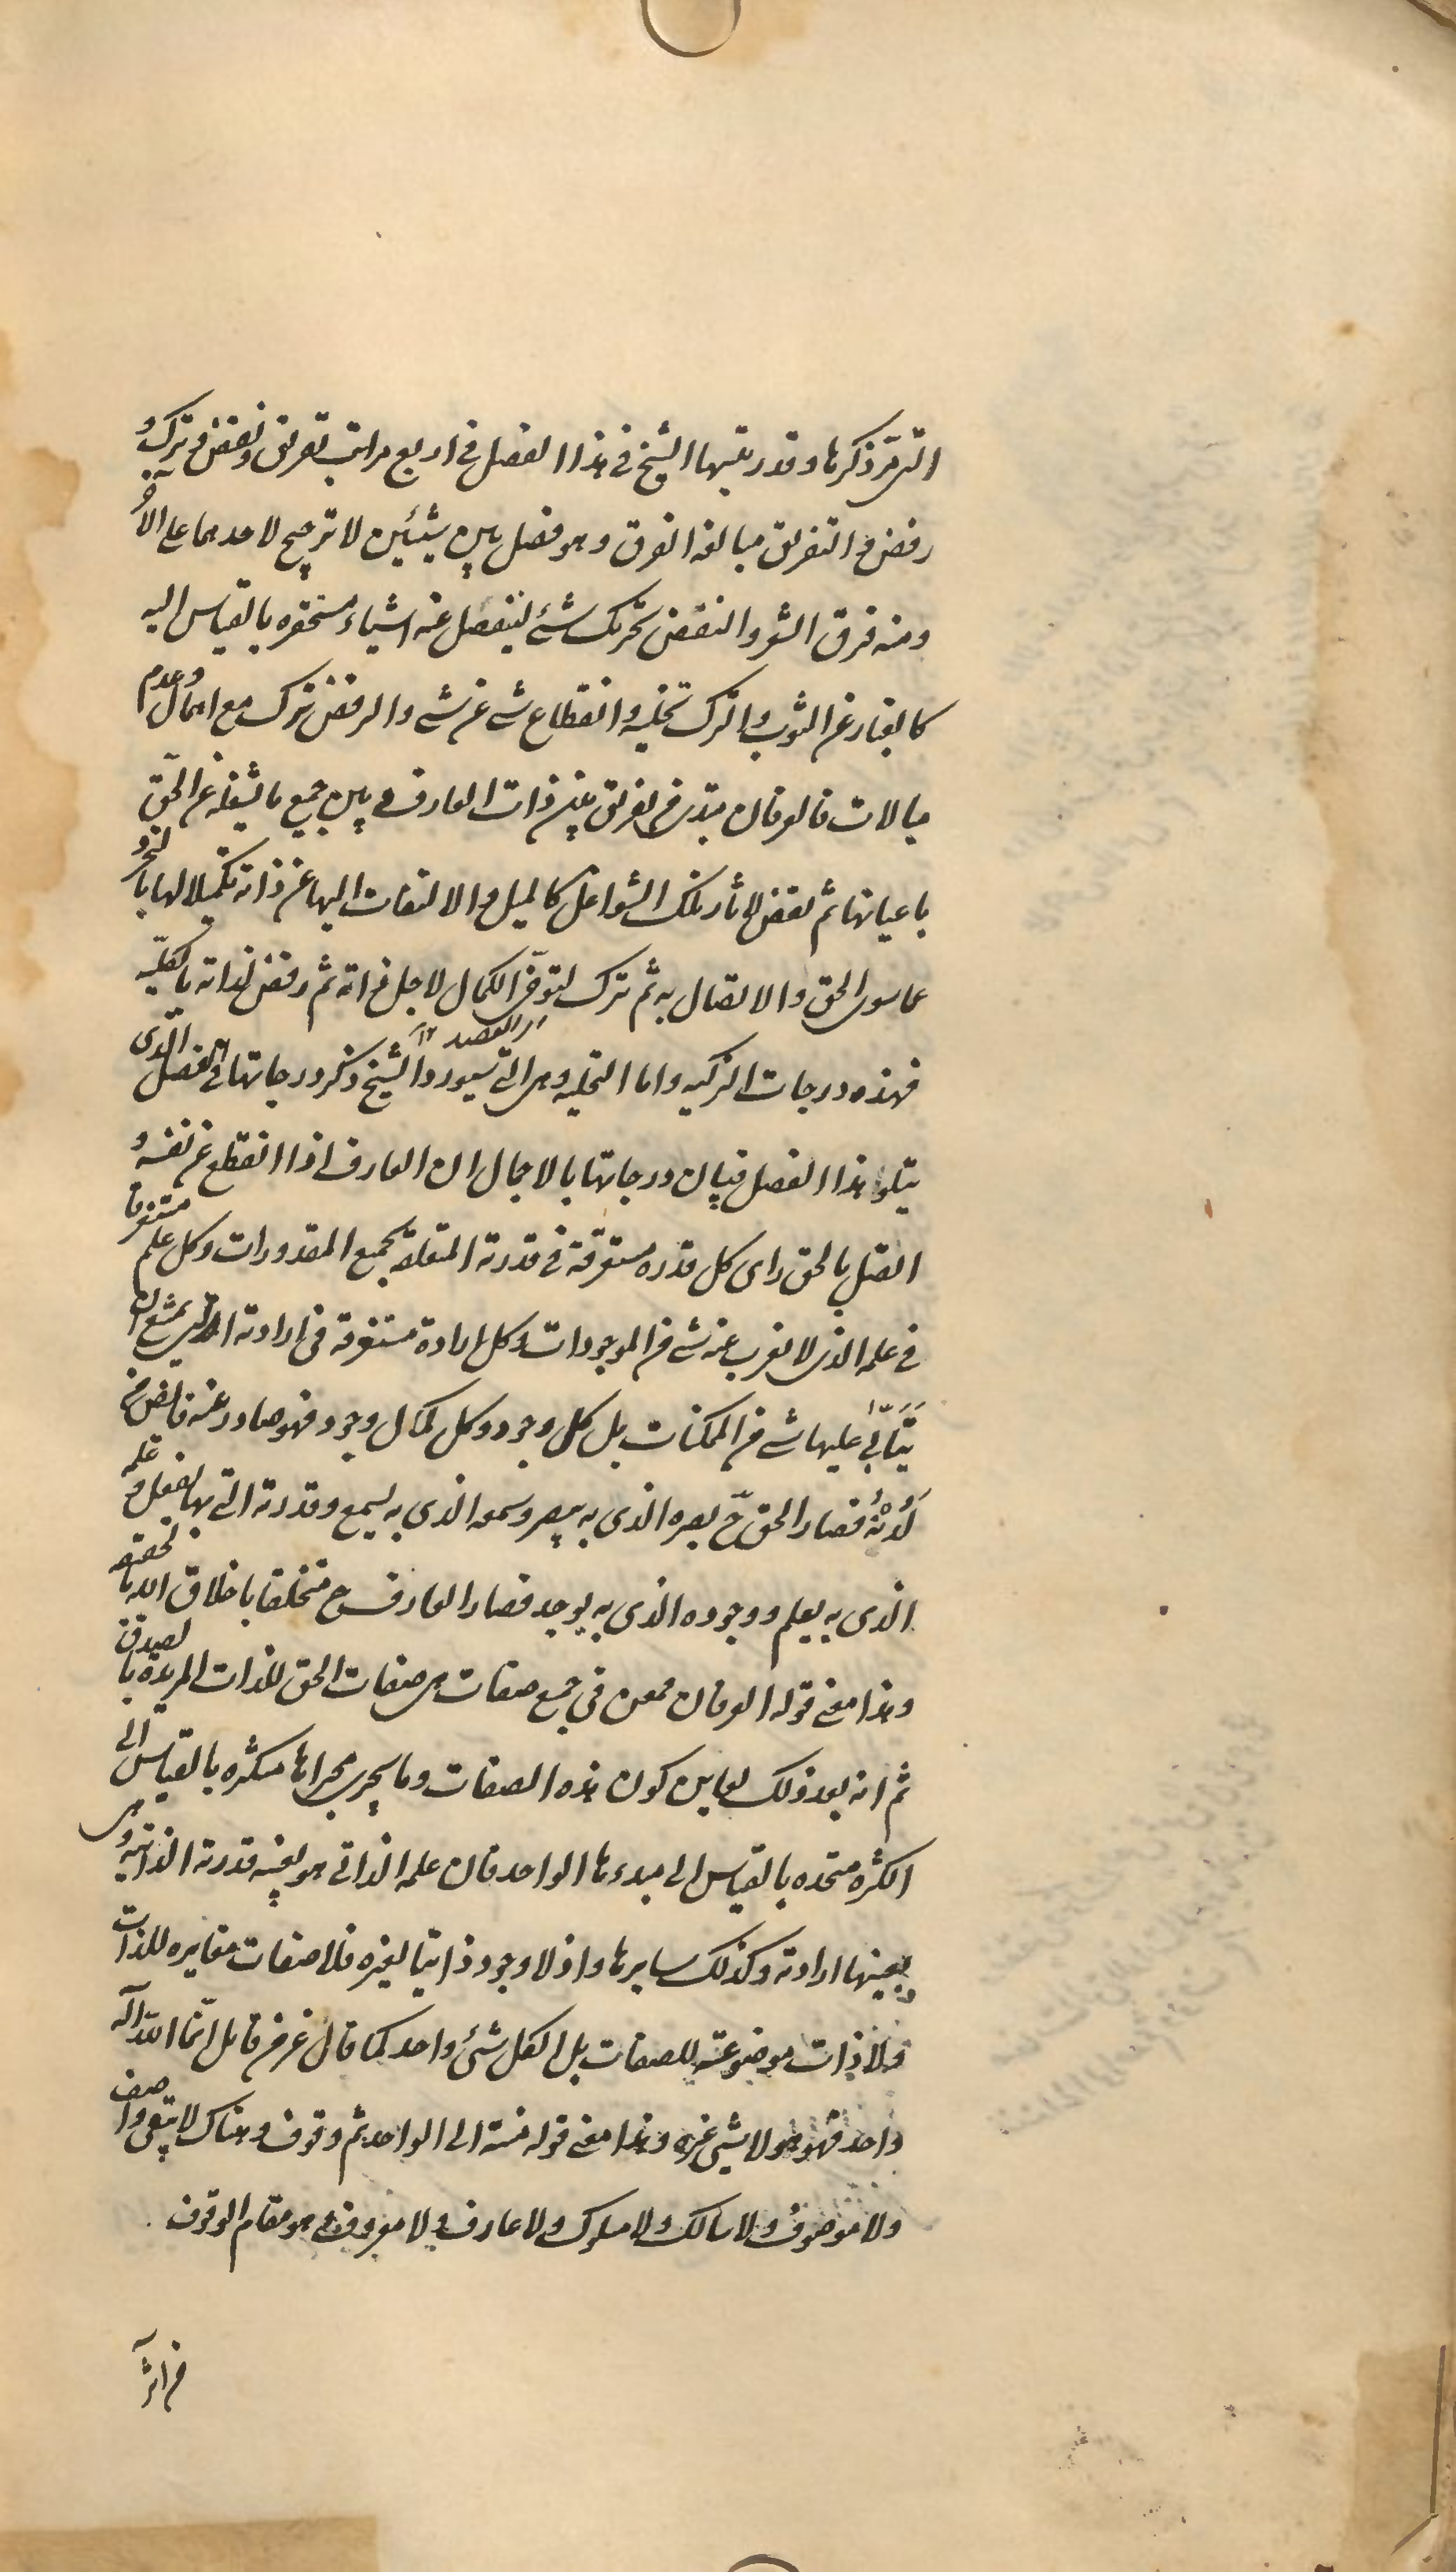 التی مرّ ذکرها و قد رتبها الشیخ فی هذا الفصل فی اربع مراتب تفریق و نفض و ترک و
رفض و التفریق مبالغه الفرق و هو فصل بین شیئین لا ترجیح لاحدهما علی الآخر
و منه فرق الشعر و النفض تحریک شئ لینفصل عنه اشیاء مستحقره بالقیاس الیه
کالغبار عن الثوب و الترک تخلیه و انقطاع شئ عن شئ و الرفض ترک مع اهمال و عدم
مبالات فالعرفان مبتدی من تفریق بین ذات العارف و بین جمیع ما یشغله عن الحقّ
باعیانها ثم نفض لآثار تلک الشواغل کالمیل و الالتفات الیها عن ذاته تکمیلا لها بالتجرد
عما سوی الحق و الاتصال به ثم ترک لتوخّی الکمال لاجل ذاته ثم رفض لذاته بالکلیّه
فهذه درجات التزکیه و اما التحلیه و هی التی سیورد الشیخ ذکر درجاتها فی الفصل الذی
یتلو هذا الفصل فبیان درجاتها بالاجمال ان العارف اذا انقطع عن نفسه و
اتصل بالحق رای کل قدره مستغرقة فی قدرته المتعلقة بجمیع المقدورات و کل علم مستغرقا
فی علمه الذی لا یعزب عنه شئ من الموجودات و کل ارادة مستغرقة فی ارادته التی یمتنع ان
یتأبّی علیها شئ من الممکنات بل کل وجود و کل کمال وجود فهو صادر عنه فائض من
لَدُنْهُ فصار الحق ح بصره الذی به یبصر و سمعه الذی به یسمع و قدرته التی بها یفعل و علمه
الذی به یعلم و وجوده الذی به یوجد فصار العارف ح متخلقا باخلاق الله بالحقیقه
و هذا معنی قوله العرفان ممعن فی جمع صفات هی صفات الحق للذات المریدة بالصدق
ثم انه بعد ذلک یعاین کون هذه الصفات و ما یجری مجراها متکثره بالقیاس الی
الکثره متحده بالقیاس الی مبدءها الواحد فان علمه الذاتی هو بعینه قدرته الذاتیه و هی
بعینها ارادته و کذلک سایرها و اذ لا وجود ذاتیا لغیره فلا صفات مغایره للذات
و لا ذات موضوعة للصفات بل الکل شئ واحد کما قال عز من قایل انّما اللّه اله
واحد فهو هو لا شئ غیره و هذا معنی قوله منته الی الواحد ثم وقوف و هناک لا یبقی واصف
و لا موصوف و لا سالک و لا مسلوک و لا عارف و لا معروف و هو مقام الوقوف